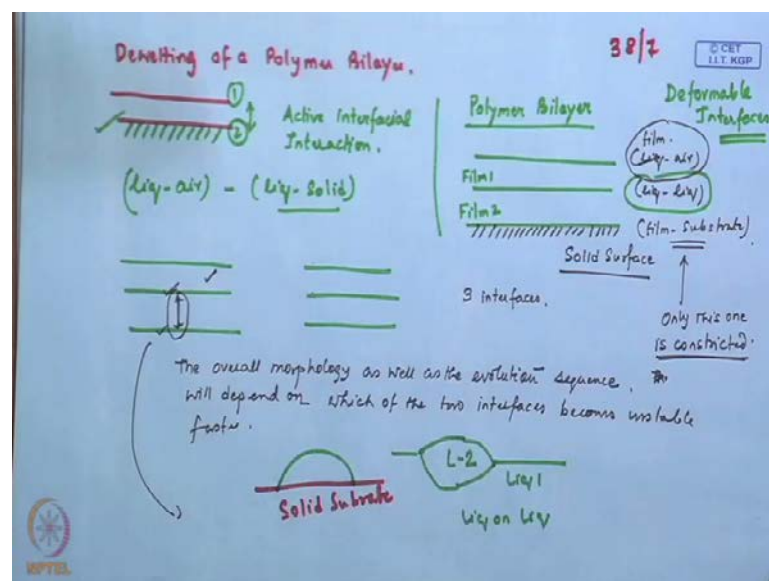 Dewetting of a Polymer Bilayer.
38/7
© CET
I.I.T. KGP
1
2
Active Interfacial
Interaction.
(liq-air) - (liq-solid)
Polymer Bilayer
Deformable
Interfaces
film.
(liq-air)
Film1
(liq-liq)
Film2
(film-substrate).
Solid Surface
3 interfaces.
Only this one
is constricted.
The overall morphology as well as the evolution sequence.
will depend on which of the two interfaces becomes unstable
faster.
L-2
Liq 1
Solid Subrate
liq on liq
NPTEL